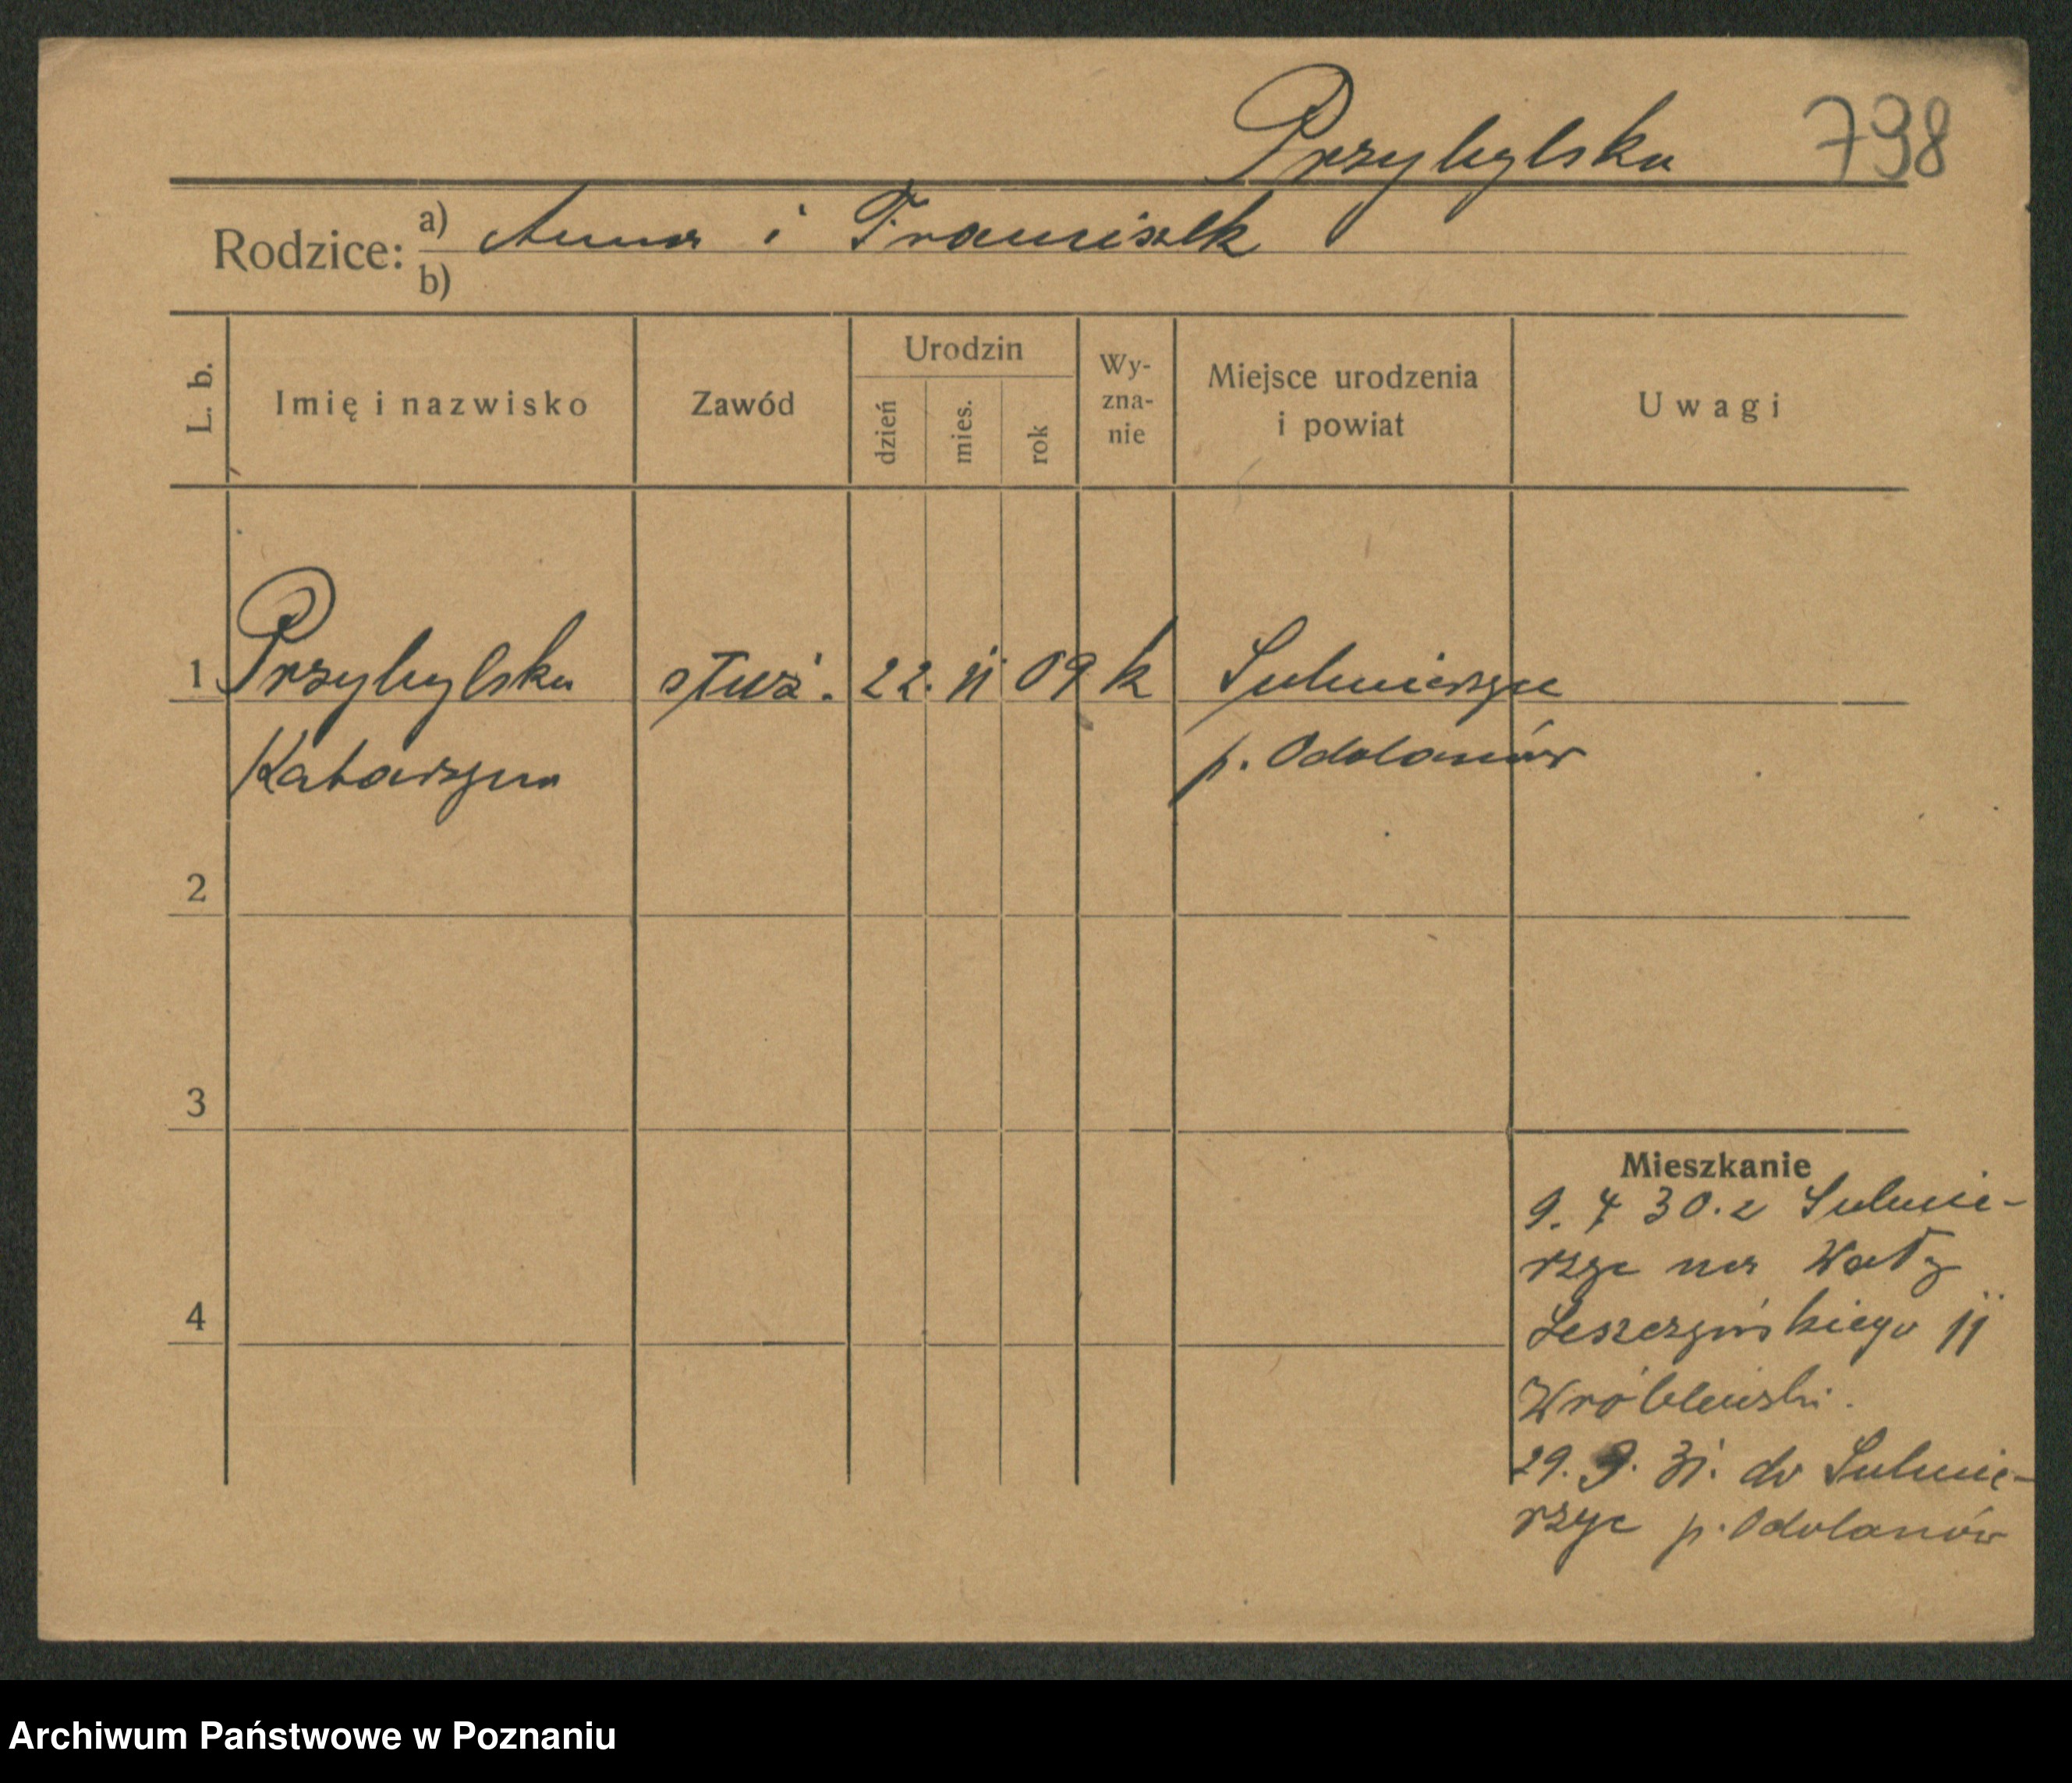 Przybylska 798
Rodzice: a) Anna i Franciszek
b)
L. b. Imię i nazwisko Zawód Urodzin dzień mies. rok Wy-zna-nie Miejsce urodzenia i powiat Uwagi
1 Przybylska służ. 22. 11 09 k Sulmierzyce
Katarzyna p. Odolanów
2
3
4
Mieszkanie
9. 4 30. z Sulmie-
rzyc na Wały
Leszczyńskiego 11
Wróblewski.
29. 9. 31. do Sulmie-
rzyc p. Odolanów
Archiwum Państwowe w Poznaniu